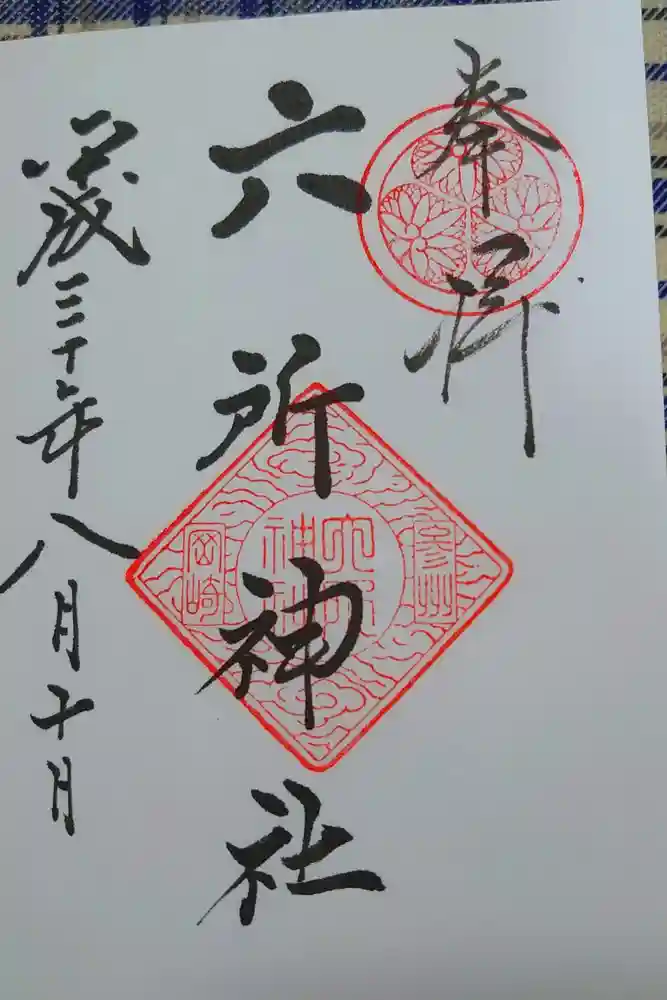 奉拝
六所神社
平成三十年八月十日
参州
六所
神社
岡崎